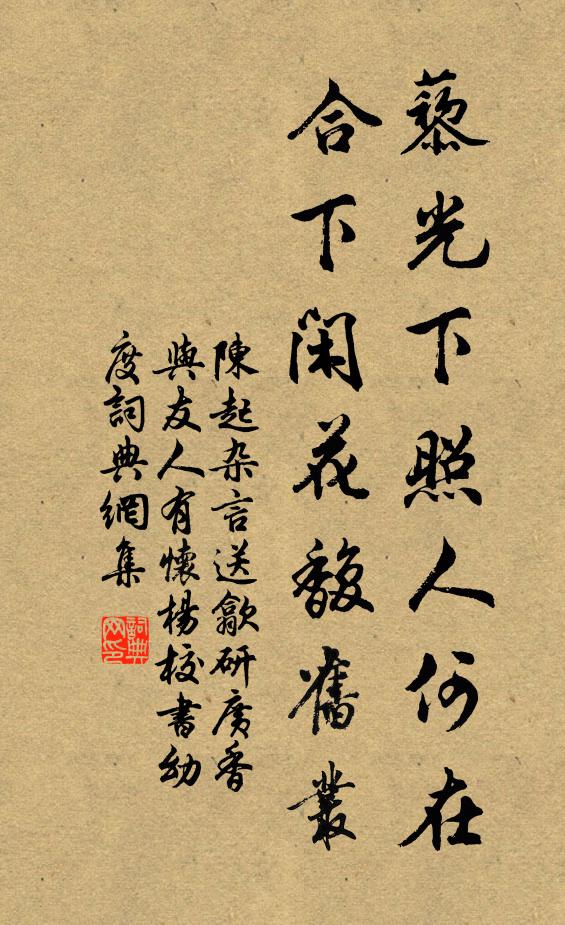 藜光下照人何在
合下閑花馥舊叢
陳起杂言送歙研廣香
與友人有懷楊校書幼
度詞典網集
詞典网印